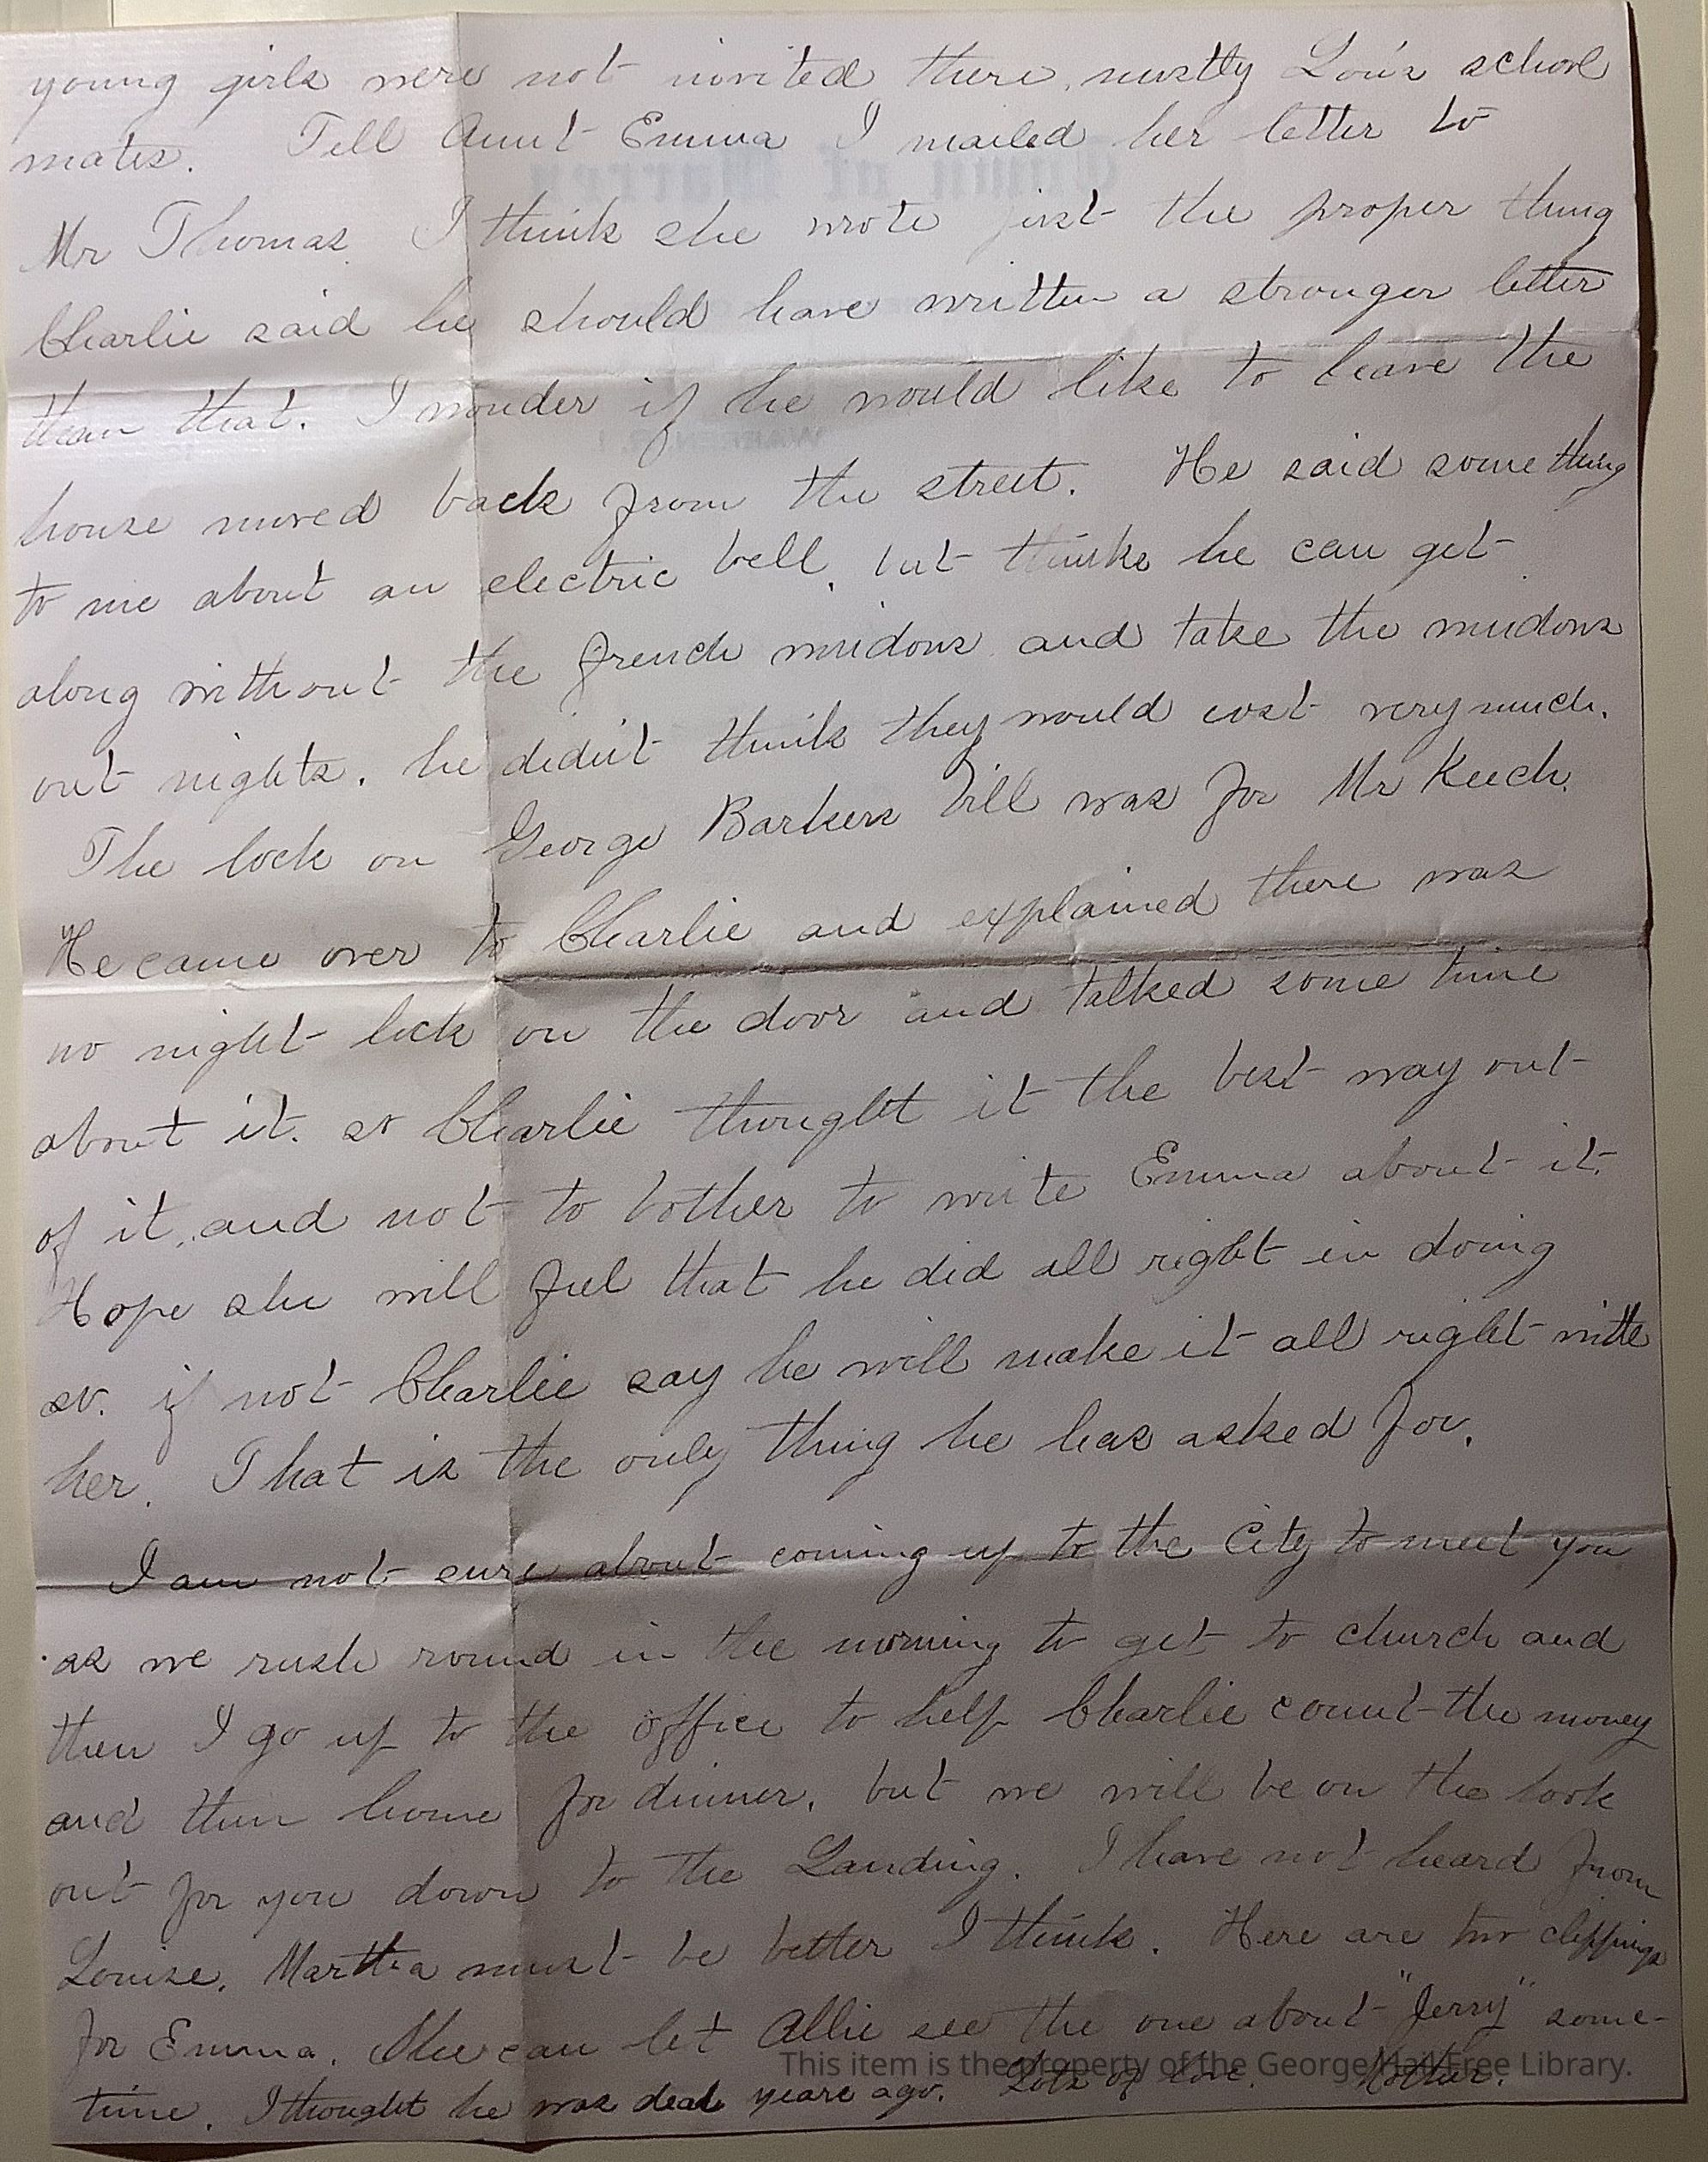 young girls were not invited there, mostly Lou's school
mates. Tell Aunt Emma I mailed her letter to
Mr Thomas. I think she wrote just the proper thing
Charlie said he should have written a stronger letter
than that. I wonder if he would like to have the
house moved back from the street. He said something
to me about an electric bell, but thinks he can get
along without the french windows and take the windows
out nights. he didn't think they would cost very much.
The lock on George Barkers bill was for Mr Keech.
He came over to Charlie and explained there was
no night lock on the door and talked some time
about it. so Charlie thought it the best way out
of it, and not to bother to write Emma about it.
Hope she will feel that he did all right in doing
so. if not Charlie say he will make it all right with
her. That is the only thing he has asked for.
I am not sure about coming up to the City to meet you
as we rush round in the morning to get to church and
then I go up to the office to help Charlie count the money
and then home for dinner, but we will be on the look
out for you down to the Landing. I have not heard from
Louise. Martha must be better I think. Here are two clippings
for Emma. She can let Allie see the one about "Jerry" some-
time. I thought he was dead years ago. Lots of love. Mother.
This item is the property of the George Hail Free Library.